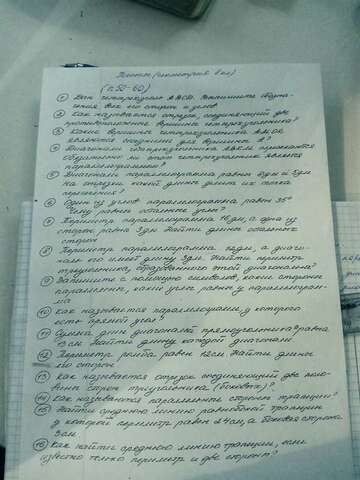 (геометрия 8 кл)
(п. 52-60)
① Дан четырехугольник ABCD. Запишите
его сторон и углов.
② Как называется отрезок, соединяющий две
противоположные вершины четырехугольника?
③ Какие вершины четырехугольника
являются соседними для вершины A?
④ Диагонали четырехугольника
Обязательно ли этот четырехугольник является
параллелограммом?
⑤ Диагонали параллелограмма равны
на отрезки какой длины делит их точка
пересечения?
⑥ Один из углов параллелограмма равен 35°
Чему равны остальные углы?
⑦ Периметр параллелограмма а одна из
сторон равна 3дм. Найти длины остальных
сторон
⑧ Периметр параллелограмма а диаго-
наль его имеет длину 3дм. Найти периметр
треугольника, образованного этой диагональю?
⑨ Запишите с помощью символов, какие стороны
параллельны, какие углы равны у параллелограм-
ма
⑩ Как называется параллелограмм, у которого
есть прямой угол?
⑪ Сумма длин диагоналей прямоугольника равна
Найти длину каждой диагонали.
⑫ Периметр ромба равен 12см Найти длины
его сторон
⑬ Как называется отрезок соединяющий
сторон (боковых)?
⑭ Как называются параллельные стороны трапеции?
⑮ Найти среднюю линию равнобокой трапеции
у которой периметр равен 24см, а боковая сторона
5см
⑯ Как найти среднюю линию трапеции, если
известно только периметр и две стороны?